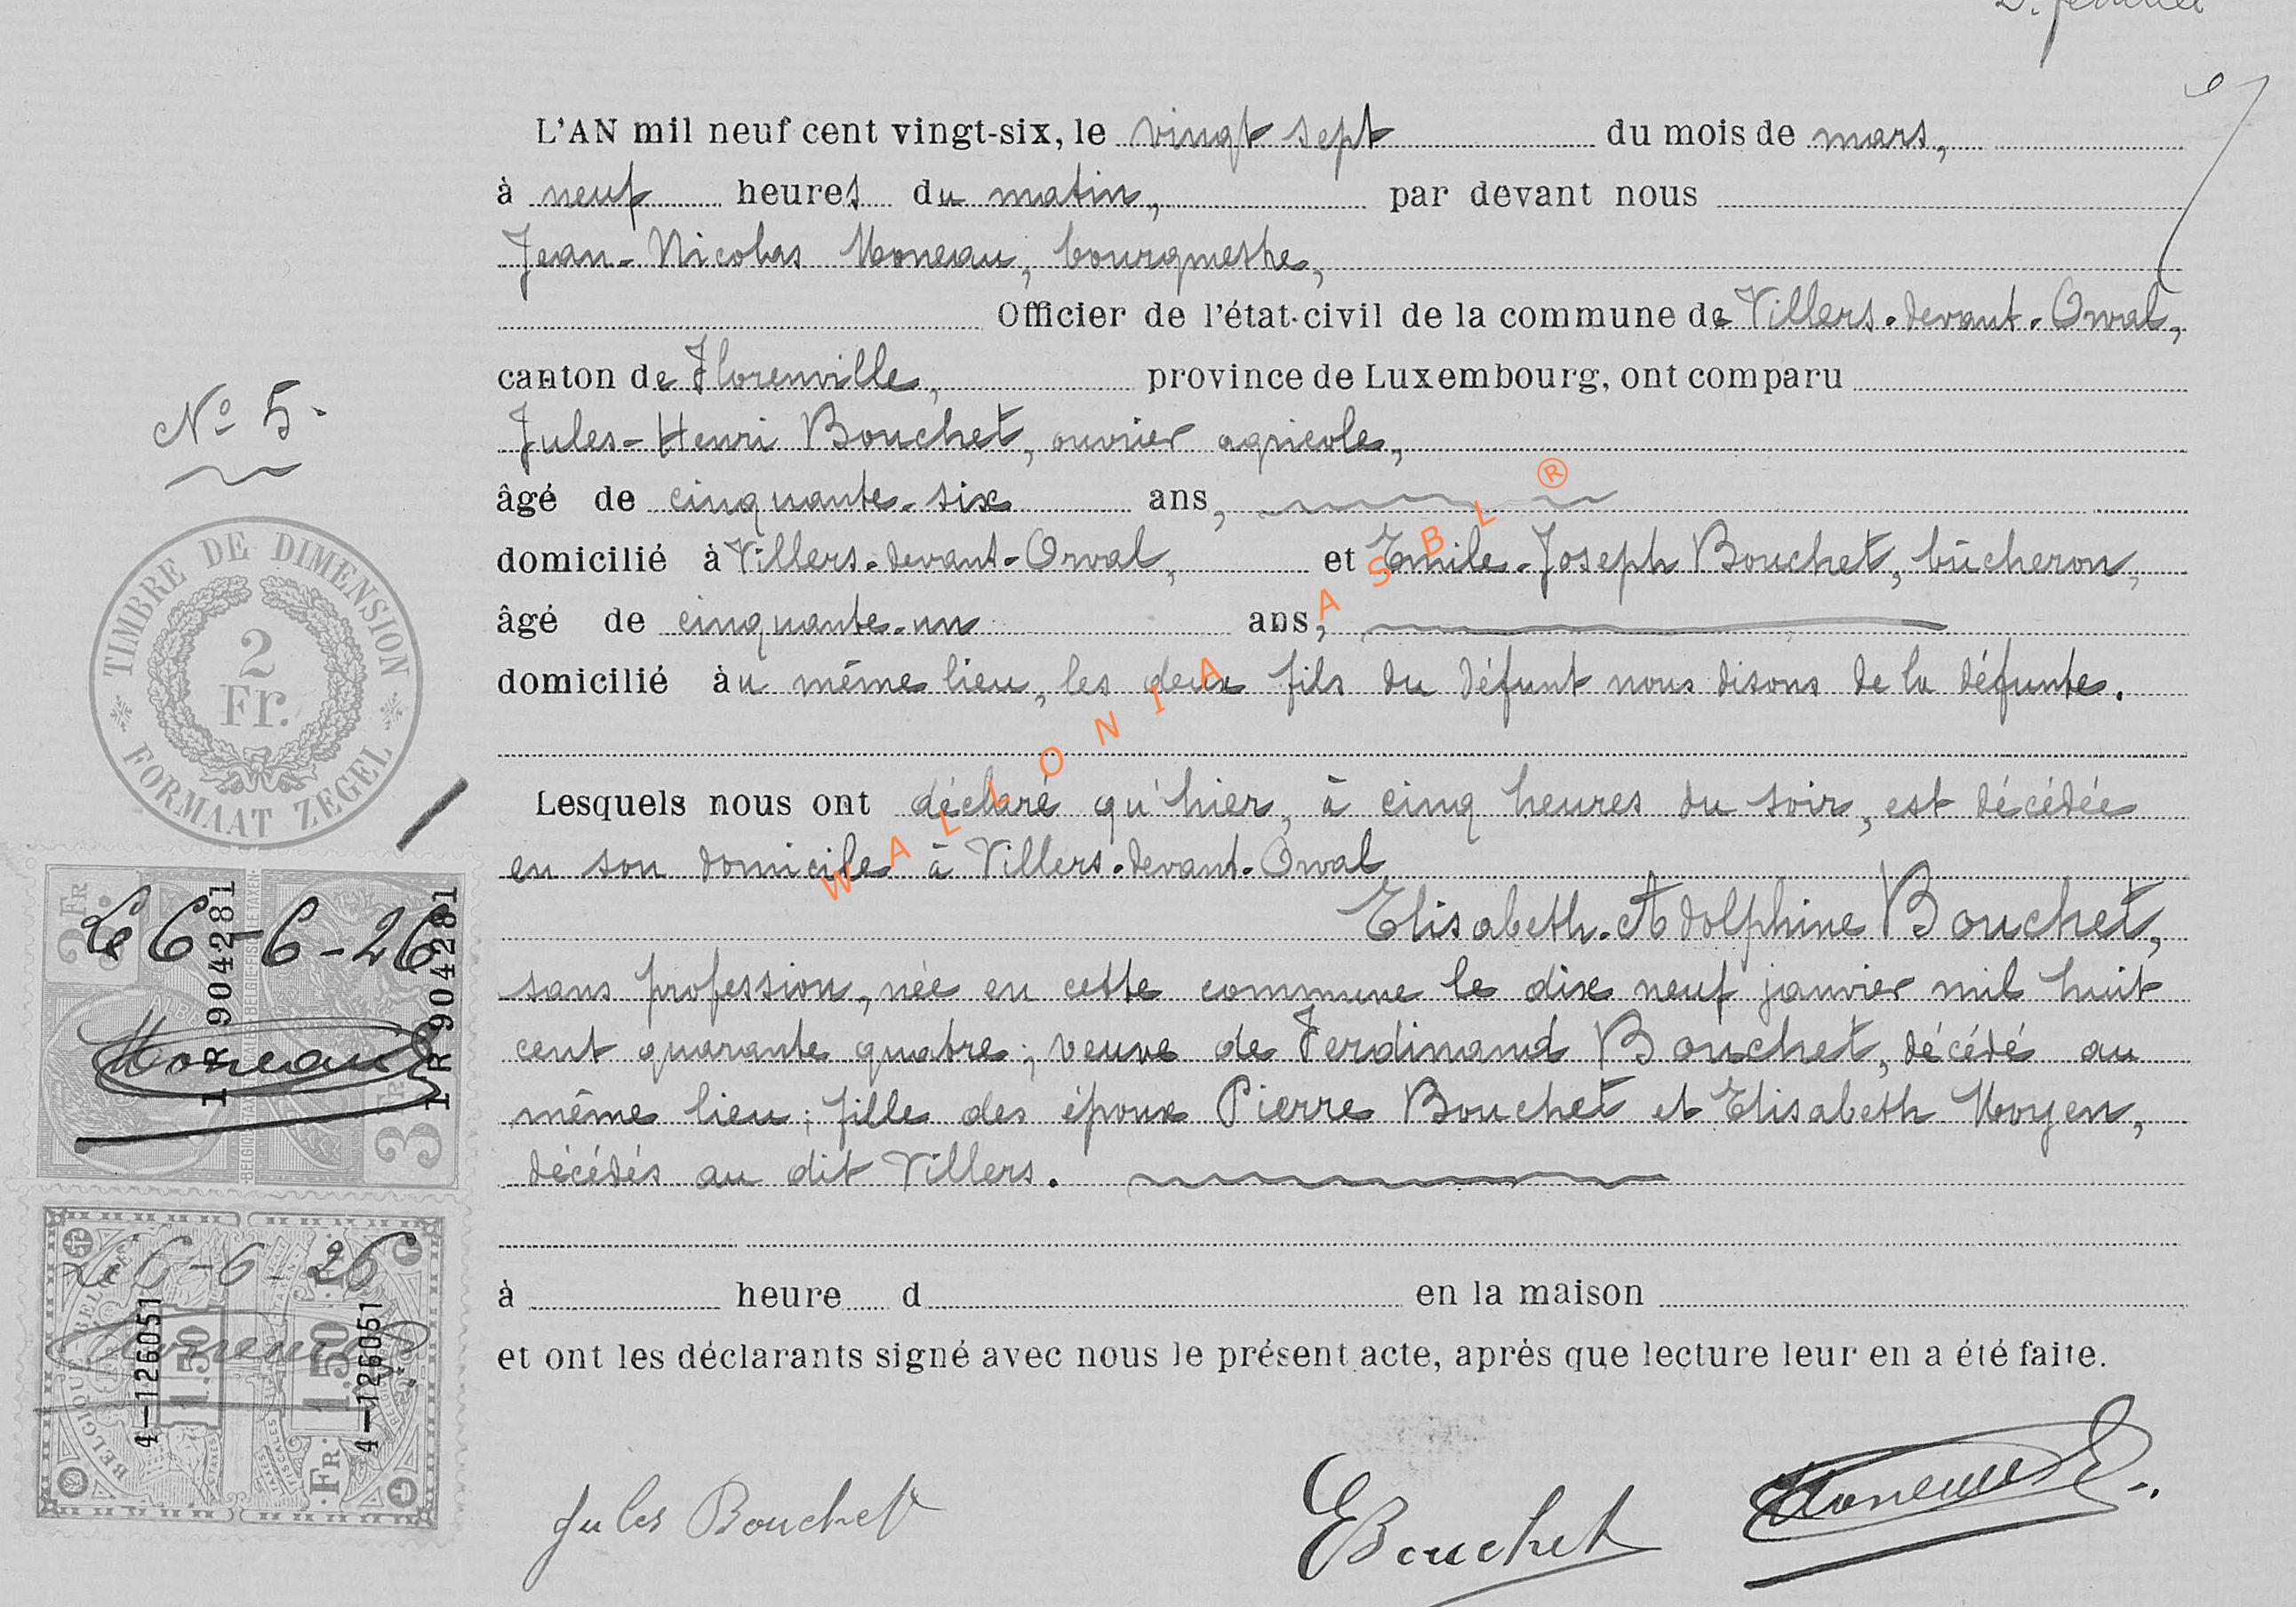 2. feuillet
L'AN mil neuf cent vingt-six, le vingt sept du mois de mars,
à neuf heures du matin, par devant nous
Jean-Nicolas Moneau, bourgmestre,
Officier de l'état-civil de la commune de Villers-devant-Orval,
canton de Florenville, province de Luxembourg, ont comparu
Jules-Henri Bouchet, ouvrier agricole,
âgé de cinquante-six ans,
domicilié à Villers-devant-Orval, et Emile-Joseph Bouchet, bûcheron,
âgé de cinquante-un ans,
domicilié au même lieu, les deux fils du défunt nous disons de la défunte.
Lesquels nous ont déclaré qu'hier, à cinq heures du soir, est décédée
en son domicile à Villers-devant-Orval
Elisabeth-Adolphine Bouchet,
sans profession, née en cette commune le dix neuf janvier mil huit
cent quarante quatre; veuve de Ferdinand Bouchet, décédé au
même lieu; fille des époux Pierre Bouchet et Elisabeth Moyen,
décédés au dit Villers.
à heure d en la maison
et ont les déclarants signé avec nous le présent acte, après que lecture leur en a été faite.
Jules Bouchet
EBouchet
Moneau
No 5.
TIMBRE DE DIMENSION
2
Fr.
FORMAAT ZEGEL
2 FR
Le 6-6-26
1 R 904281
1 R 904281
Moneau
3 FR
Le 6-6-26
Moneau
4-126051
4-126051
1.50
1.50
FR
BELGIQUE
WALLONIA ASBL ®